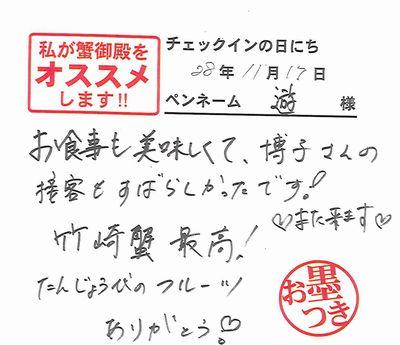 私が蟹御殿を
オススメ
します!!
チェックインの日にち
28年11月17日
ペンネーム 遊 様
お食事も美味しくて、博子さんの
接客もすばらしかったです!
♡また来ます♡
竹崎蟹 最高!
たんじょうびのフルーツ
ありがとう♡
お墨
つき